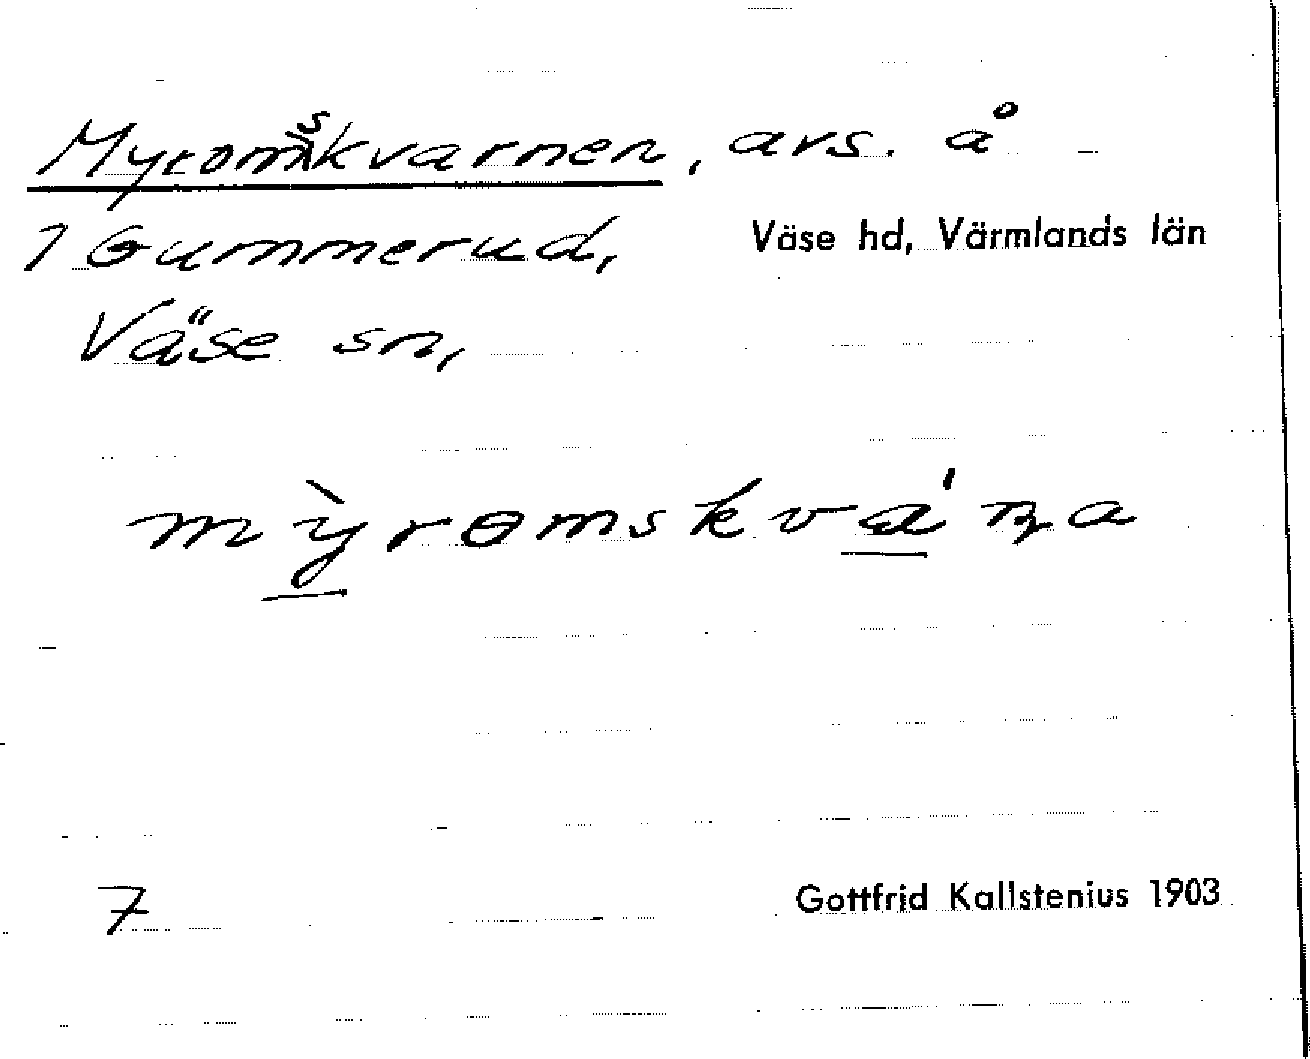 Myromskvarnen, avs. å
1 Gummerud,
Väse hd, Värmlands län
Väse sn,
mỳromskváꞃa
7
Gottfrid Kallstenius 1903